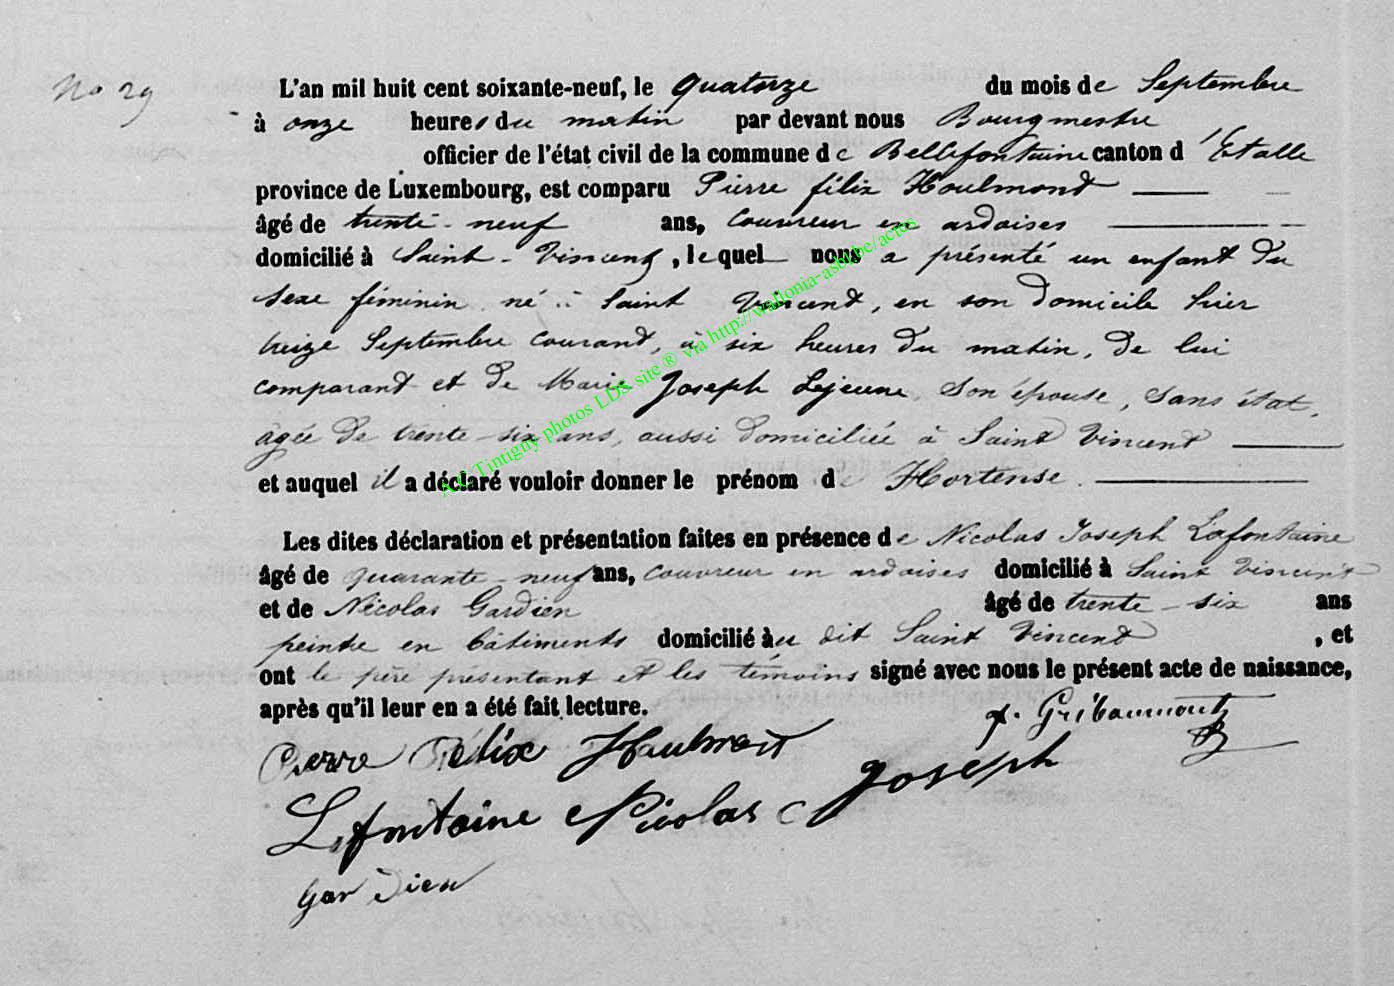 No 29
L'an mil huit cent soixante-neuf, le quatorze du mois de Septembre
à onze heures du matin par devant nous Bourgmestre
officier de l'état civil de la commune de Bellefontaine canton d'Etalle
province de Luxembourg, est comparu Pierre félix Houlmont
âgé de trente-neuf ans, couvreur en ardoises
domicilié à Saint-Vincent, lequel nous a présenté un enfant du
sexe féminin né à Saint Vincent, en son domicile hier
treize Septembre courant, à six heures du matin, de lui
comparant et de Marie Joseph Lejeune son épouse, sans état,
âgée de trente-six ans, aussi domiciliée à Saint Vincent
et auquel il a déclaré vouloir donner le prénom de Hortense.
Les dites déclaration et présentation faites en présence de Nicolas Joseph Lafontaine
âgé de quarante-neuf ans, couvreur en ardoises domicilié à Saint Vincent
et de Nicolas Gardien âgé de trente-six ans
peintre en bâtiments domicilié au dit Saint Vincent, et
ont le père présentant et les témoins signé avec nous le présent acte de naissance,
après qu'il leur en a été fait lecture.
Gribaumont
Pierre Félix Haulmont
Lafontaine Nicolas Joseph
Gardien
Tintigny photos LDS site ® via http://wallonia-asbl.be/actes